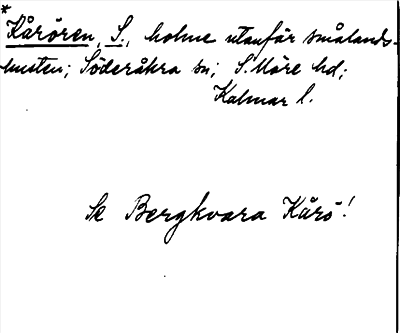 *
Kårören, S., holme utanför smålands-
kusten; Söderåkra sn; S. Möre hd;
Kalmar l.
Se Bergkvara Kårö!